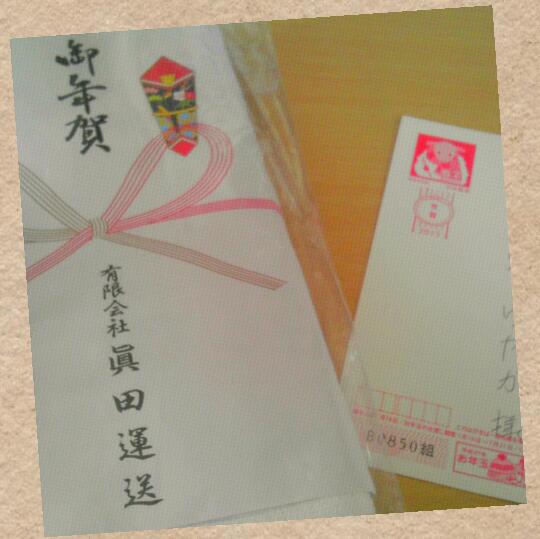 御年賀
有限会社
眞田運送
年賀
2015
いたか様
B0850組
お年玉